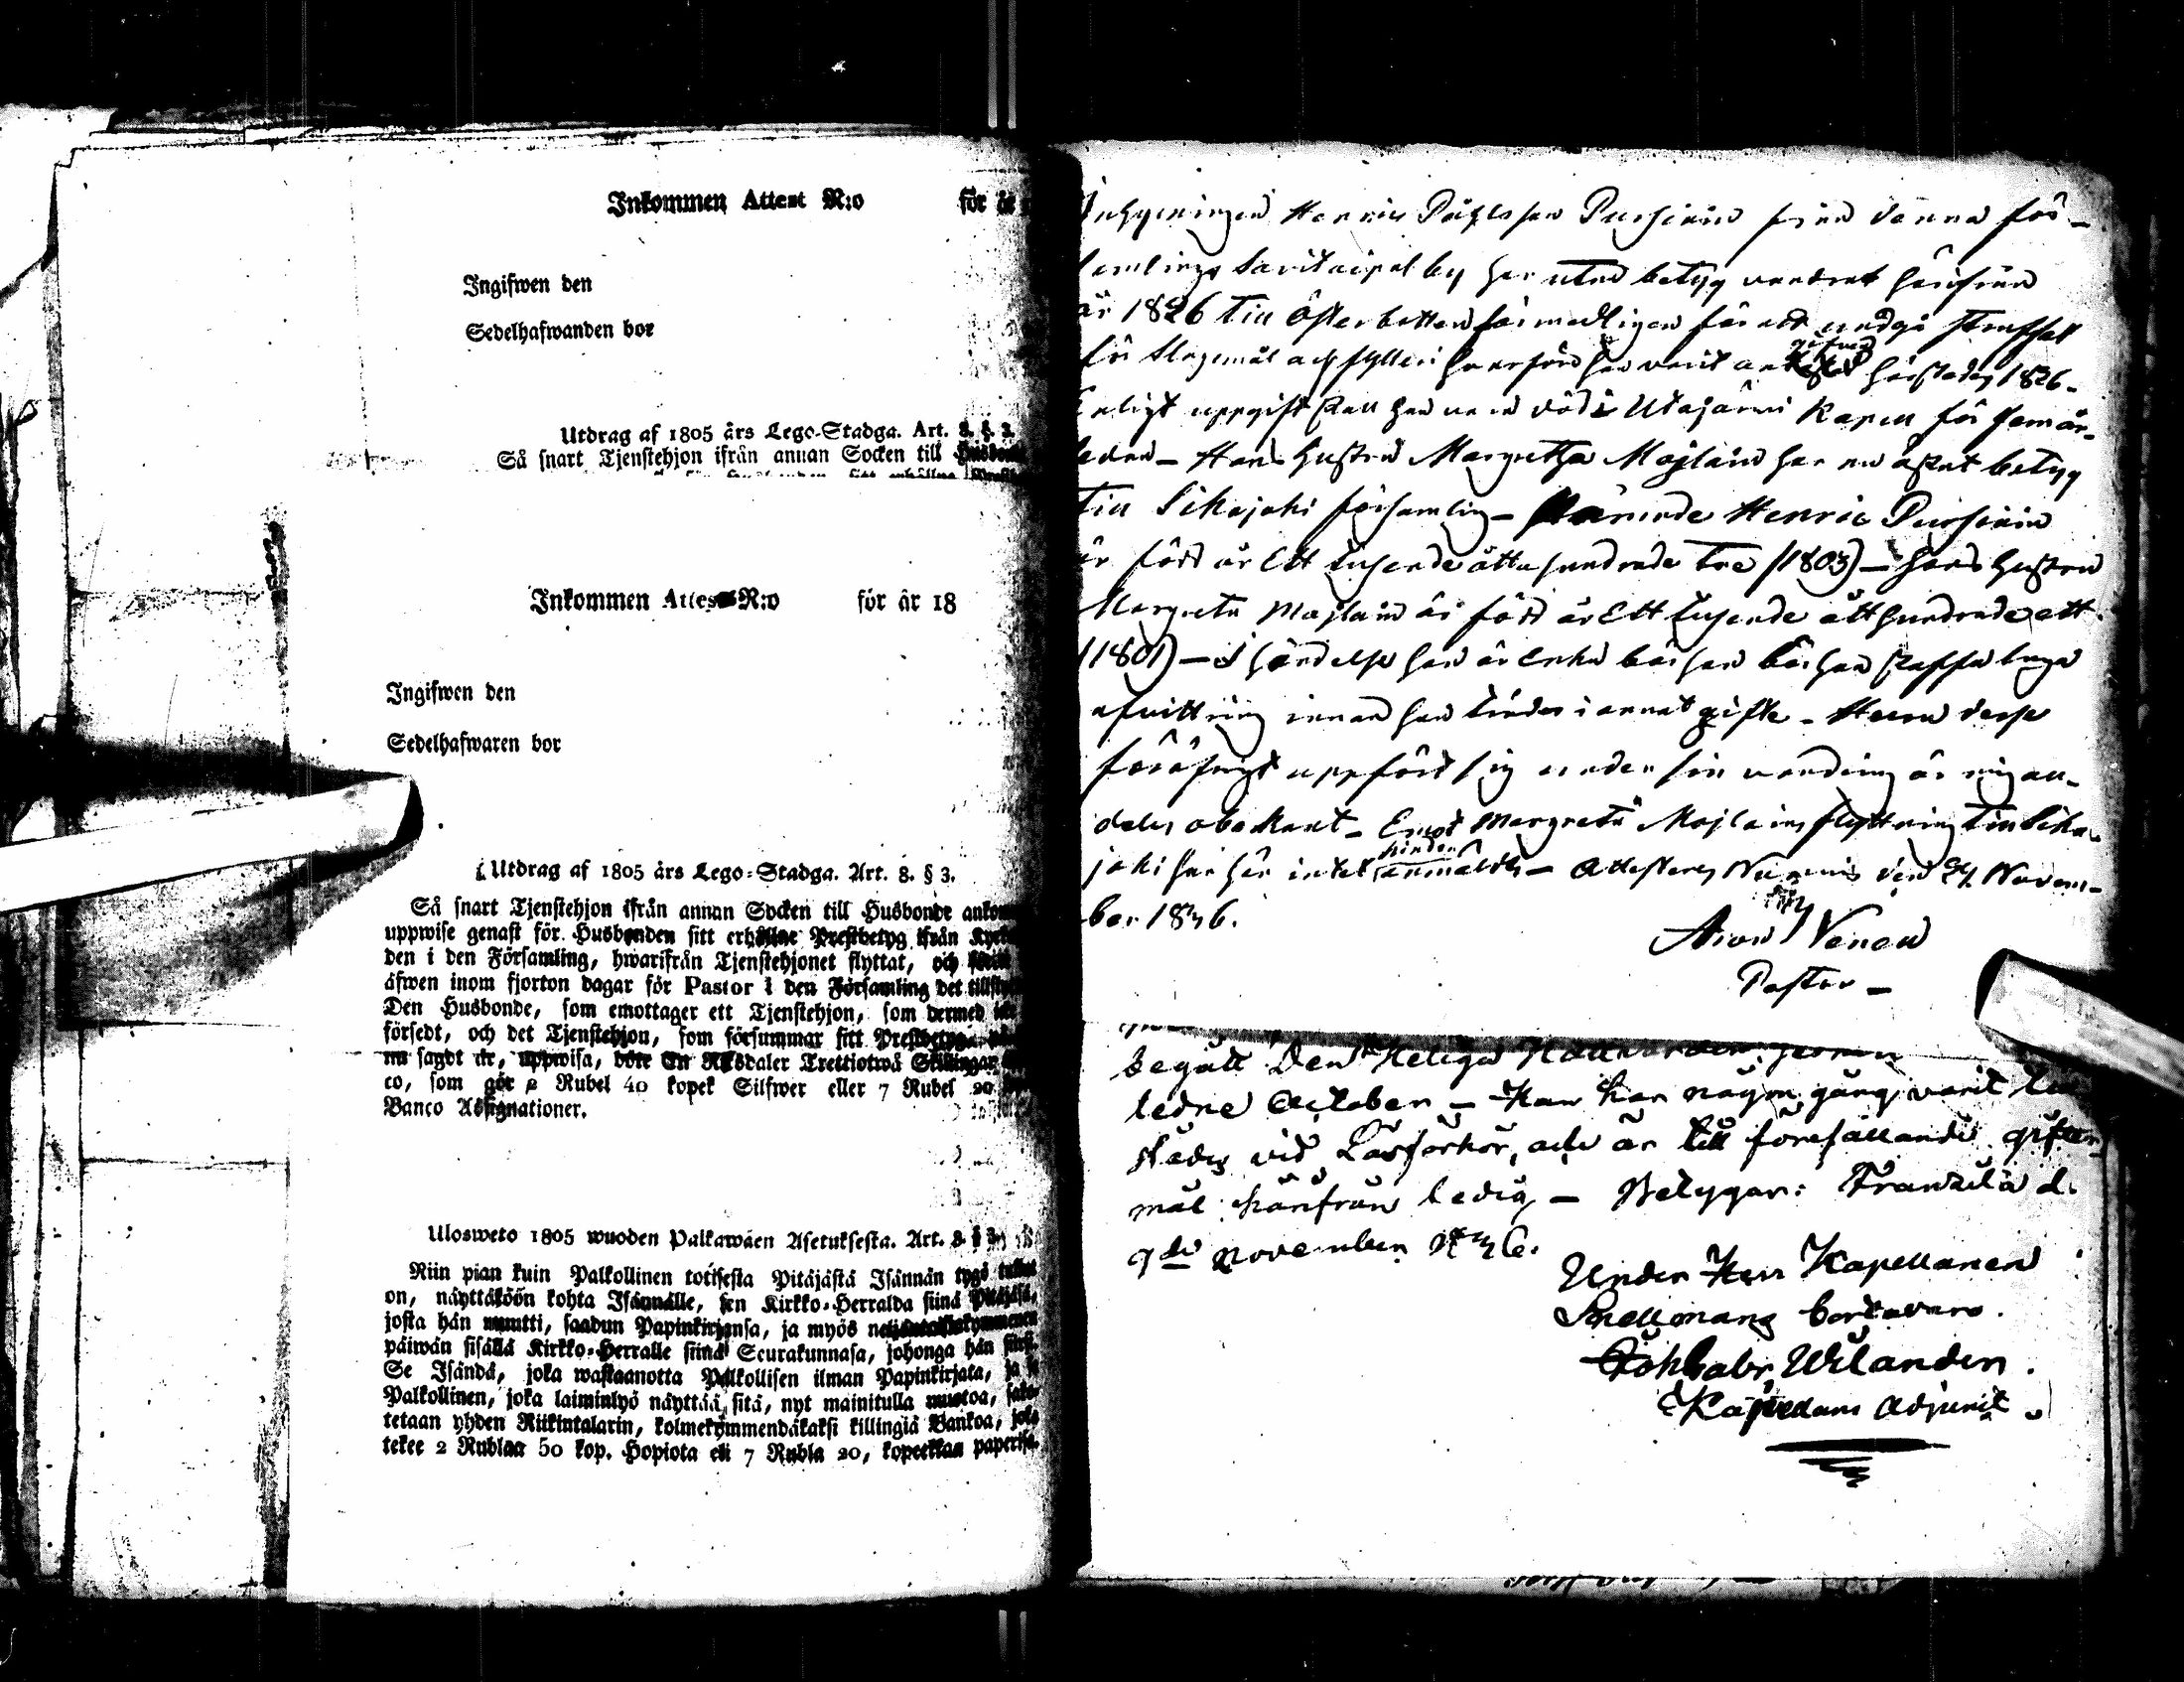 Inkommen Attest N:o för år
Ingifwen den
Sedelhafwanden bor
Utdrag af 1805 års Lego-Stadga. Art. 8. §. 3.
Så snart Tjenstehjon ifrån annan Socken till Husbonde
Inkommen Attest N:o för år 18
Ingifwen den
Sedelhafwaren bor
Utdrag af 1805 års Lego-Stadga. Art. 8. § 3.
Så snart Tjenstehjon ifrån annan Socken till Husbonde
uppwise genast för Husbonden sitt erhållne Prestbetyg ifrån
den i den Församling, hwarifrån Tjenstehjonet flyttat, och
äfwen inom fjorton dagar för Pastor i den Församling det
Den Husbonde, som emottager ett Tjenstehjon, som dermed
försedt, och det Tjenstehjon, som försummar sitt Prestbetyg
nu sagdt är, uppwisa, böte En Riksdaler Trettiotwå Skillingar
co, som gör 2 Rubel 40 kopek Silfwer eller 7 Rubel 20
Banco Assignationer.
Ulosweto 1805 wuoden Palkawäen Asetuksesta. Art. 8. § 3.
Niin pian kuin Palkollinen toisesta Pitäjästä Isännän tygö tullut
on, näyttäköön kohta Isännälle, sen Kirkko-Herralda siinä Pitäjäsä,
josta hän muutti, saadun Papinkirjansa, ja myös neljäntoistakymmenen
päiwän sisällä Kirkko-Herralle siinä Seurakunnasa, johonga hän
Se Isändä, joka wastaanotta Palkollisen ilman Papinkirjata, ja
Palkollinen, joka laiminlyö näyttää sitä, nyt mainitulla muotoa,
tetaan yhden Riikintalarin, kolmekymmendäkaksi killingiä Bankoa, joka
tekee 2 Rublaa 50 kop. Hopiota eli 7 Rubla 20, kopeekkaa paperisa.
Inhysningen Henric Påhlsson Pursiain från denna för-
samlings by har utan betyg vandrat härifrån
år 1826 till Österbotten förmodligen för att undgå straffet
för slagsmål och fylleri hvarföre han varit an gifven härstädes 1826-
Enligt uppgift skall han varit död i Utajärvi Kapell för fem år
sedan - Hans hustru Margretha Majlain har nu äskat betyg
till Sikajoki församling - Henric Pursiain
är född år Ett tusende åtta hundrade tre (1803) - hans hustru
Margreta Majlain är född år Ett tusende ått hundrade ett
(1801) - I händelse hon är enka bör hon skaffa laga
afvittring innan hon träder i annat gifte - Huru desse
föröfrigt uppfört sig under sin vandring är mig all-
deles obekant - Emot Margreta Majlains flyttning till Sika-
joki har här intet hinder anmäldts - Attesteras Nurmis den 24 Novem-
ber 1836.
Aron Nenen
Pastor -
begått Den Heliga Nattvarden
ledne October - Han har någon gång varit
städes vid Läsförhör, och är till förefallande gifter-
mål härifrån ledig - Betygar: Frantzila d.
9de November 1836.
Under Herr Kapellanen
Snellmans bortavaro.
Wilander.
Kapellans Adjunct.